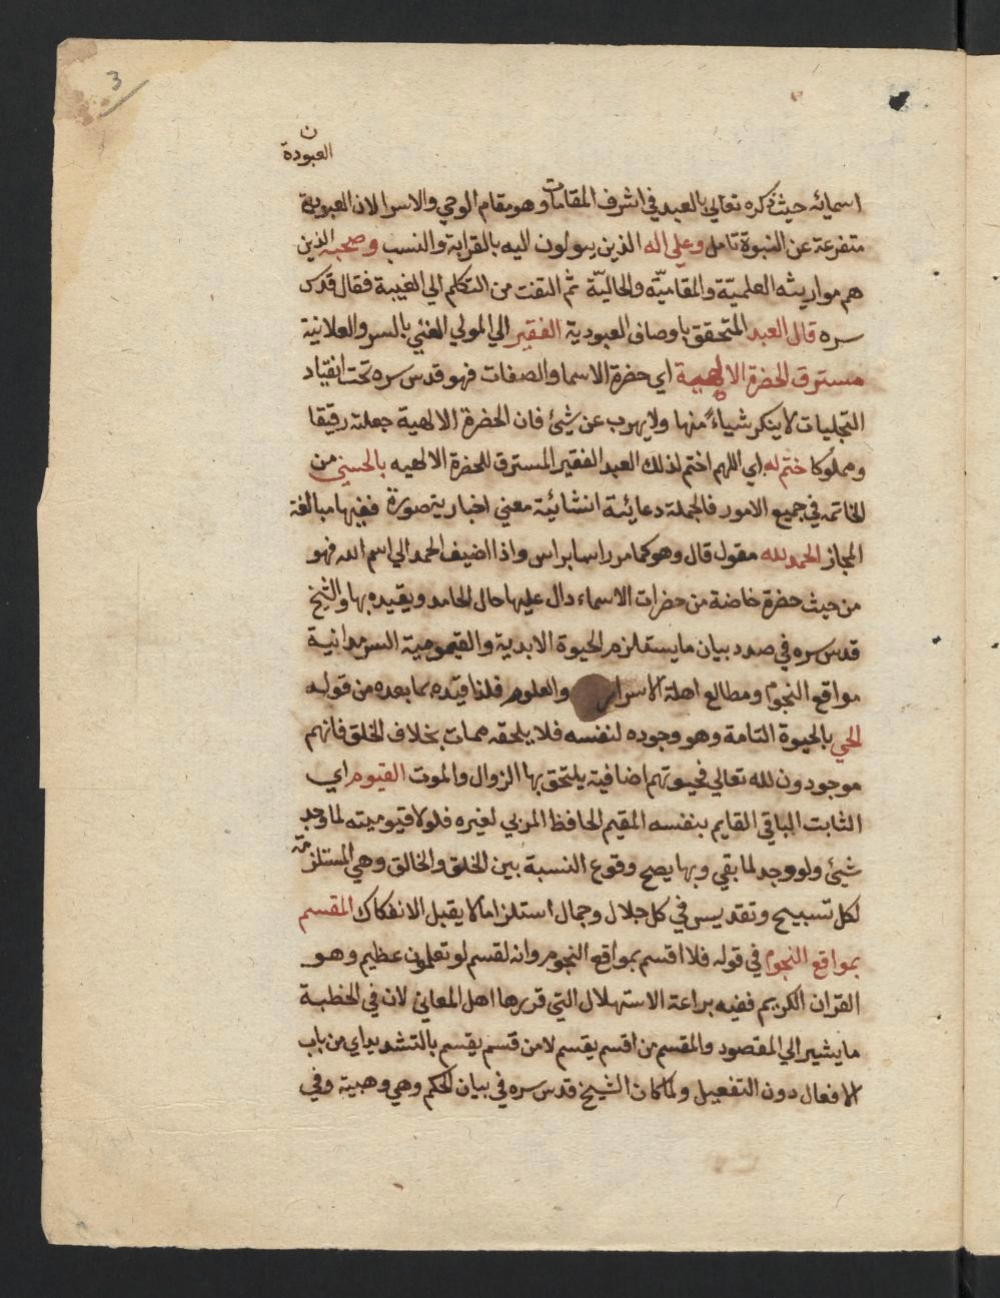 3
ن
العبودة
اسمائه حيث ذكره تعالي بالعبد في اشرف المقامات وهو مقام الوحي والاسرا لان العبودية
متفرعة عن النبوة تامل وعلي اله الذين يؤولون اليه بالقرابة والنسب وصحبه الذين
هم مواريثه العلمية والمقاميّه والحاليّة ثم التفت من التكلم الي الغيبة فقال قدس
سره قال العبد المتحقق باوصاف العبودية الفقير الي المولي الغني بالسر والعلانية
مسترق الحضرة الالهية اي حضرة الاسما والصفات فهو قدس سره تحت انقياد
التجليات لا ينكر شياءً منها ولا يهرب عن شئ فان الحضرة الالهية جعلته رقيقا
ومملوكا ختم له اي اللهم اختم لذلك العبد الفقير المسترق للحضرة الالهيه بالحسني من
الخاتمه في جميع الامور فالجملة دعائية انشائية معني اخبارية صورة ففيها مبالغة
المجاز الحمد لله مقول قال وهو كما مر راسا براس واذا اضيف الحمد الي اسم الله فهو
من حيث حضرة خاضة من حضرات الاسماء دال عليها حال الحامد ويقيده بها والشيخ
قدس سره في صدد بيان ما يستلزم الحيوة الابدية والقيمومية السرمدانية
مواقع النجوم ومطالع اهلة الاسرار والعلوم فلذا قيّده بما بعده من قوله
الحي بالحيوة التامة وهو وجوده لنفسه فلا يلحقه ممات بخلاف الخلق فانهم
موجودون لله تعالي فحيوتهم اضافية يلتحق بها الزوال والموت القيوم اي
الثابت الباقي القايم بنفسه المقيم الحافظ المربي لغيره فلولا قيوميته لما وجد
شئ ولو وجد لما بقي وبها يصح وقوع النسبة بين الخلق والخالق وهي المستلزمة
لكل تسبيح وتقديس في كل جلال وجمال استلزاما لا يقبل الانفكاك المقسم
بمواقع النجوم في قوله فلا اقسم بمواقع النجوم وانه لقسم لو تعلمون عظيم وهو
القران الكريم ففيه براعة الاستهلال التي قررها اهل المعاني لان في الخطبة
ما يشير الي المقصود والمقسم من اقسم يقسم لا من قسم يقسم بالتشديد اي من باب
الافعال دون التفعيل ولما كان الشيخ قدس سره في بيان الحكم وهي وهبية وفي